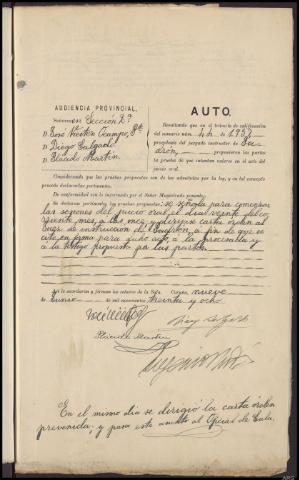 AUDIENCIA PROVINCIAL.
Señores de Sección 2ª
D. José Ocampo, Pte
D. Diego Salgado
D. Plácido Martin
AUTO.
Resultando que en el trámite de calificación
del sumario núm. 44 de 1937
procedente del juzgado instructor de
propusieron las partes
la prueba de que intentan valerse en el acto del
juicio oral.
Considerando que las pruebas propuestas son de las admitidas por la ley, y en tal concepto
procede declararlas pertinentes.
De conformidad con lo informado por el Señor Magistrado ponente,
Se declaran pertinentes las pruebas propuestas; se señala para comenzar
las sesiones del juicio oral, el día veinte de
mes, a las once, y dirijase carta orden al
Juez de instrucción de a fin de que se
cite en forma para dicho acto, a la procesada y
a la prueba propuesta por las partes.
Así lo acordaron y firman los señores de la Sala. nueve
de Junio de mil novecientos treinta y ocho
Plácido Martin
Diego Salgado
En el mismo día se dirigió la carta orden
prevenida, y para este envío al Oficial de Sala.